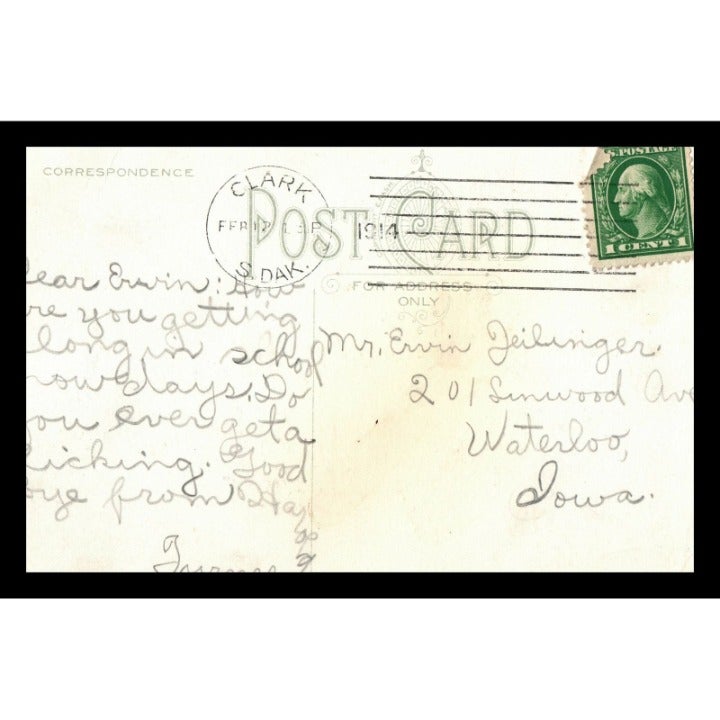 CORRESPONDENCE
CLARK
FEB 12
S. DAK.
1914
POST CARD
FOR ADDRESS
ONLY
S. POSTAGE
1 CENT 1
ear Erwin: How
re you getting
long in school
now days. Do
you ever get a
licking. Good
bye from
Mr. Ervin
201 Linwood Ave
Waterloo,
Iowa.